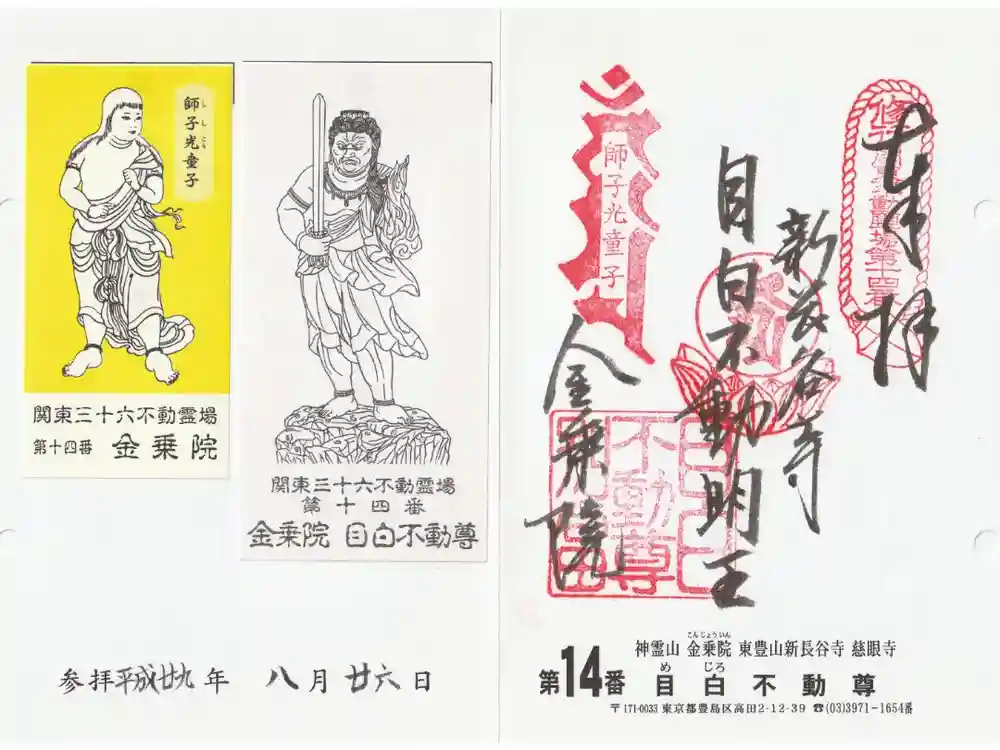 師子光童子
しし こう
関東三十六不動霊場
第十四番 金乗院
関東三十六不動霊場
第十四番
金乗院 目白不動尊
参拝平成廿九年 八月廿六日
奉拝
新長谷寺
目白不動明王
金乗院
師子光童子
不動尊
こんじょういん
神霊山 金乗院 東豊山新長谷寺 慈眼寺
め じろ
第14番 目白不動尊
〒171-0033 東京都豊島区高田2-12-39 ☎(03)3971-1654番